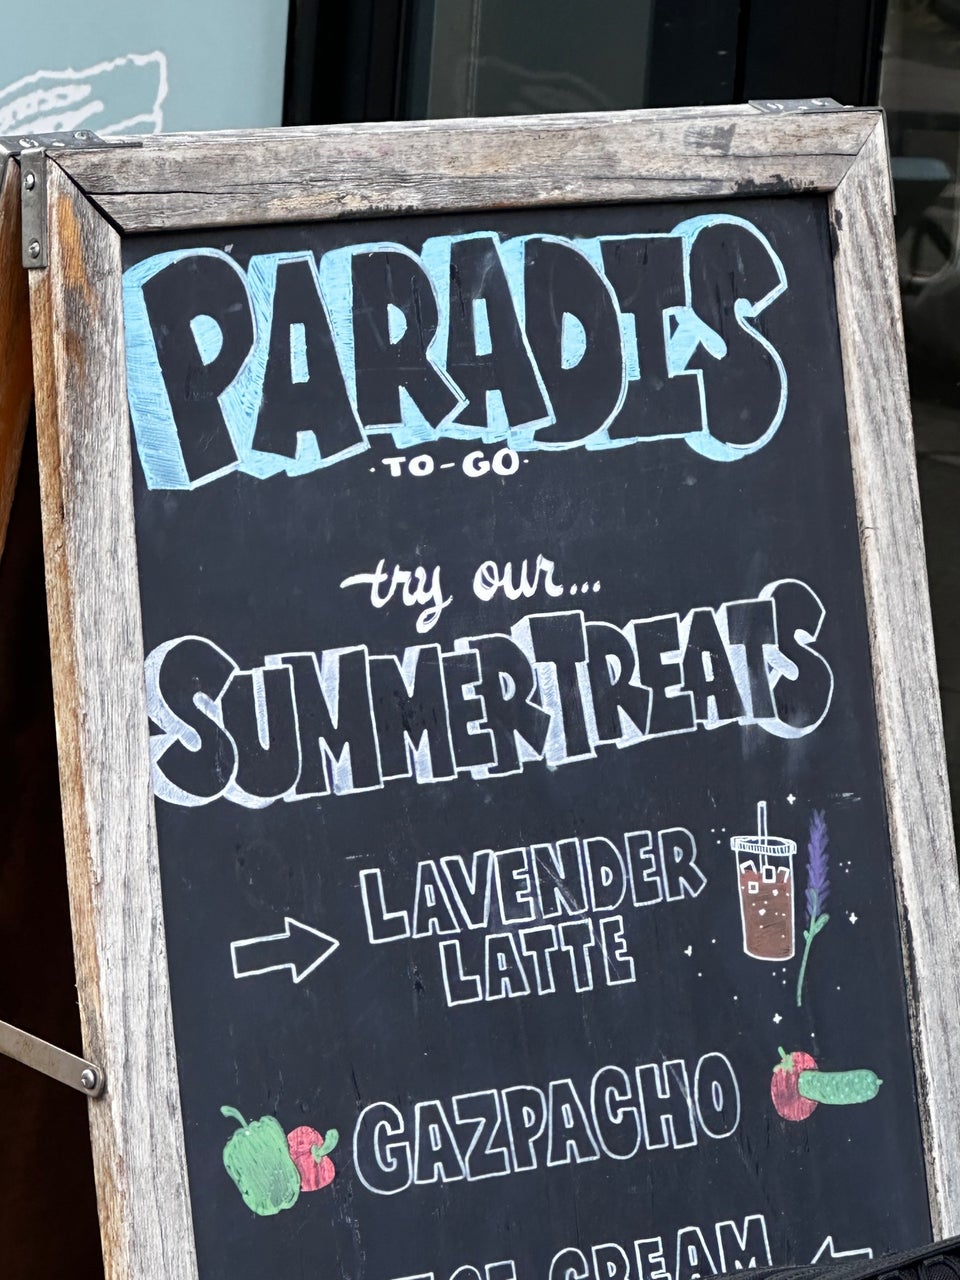 PARADIS
TO-GO
try our...
SUMMER TREATS
LAVENDER
LATTE
GAZPACHO
ICE CREAM